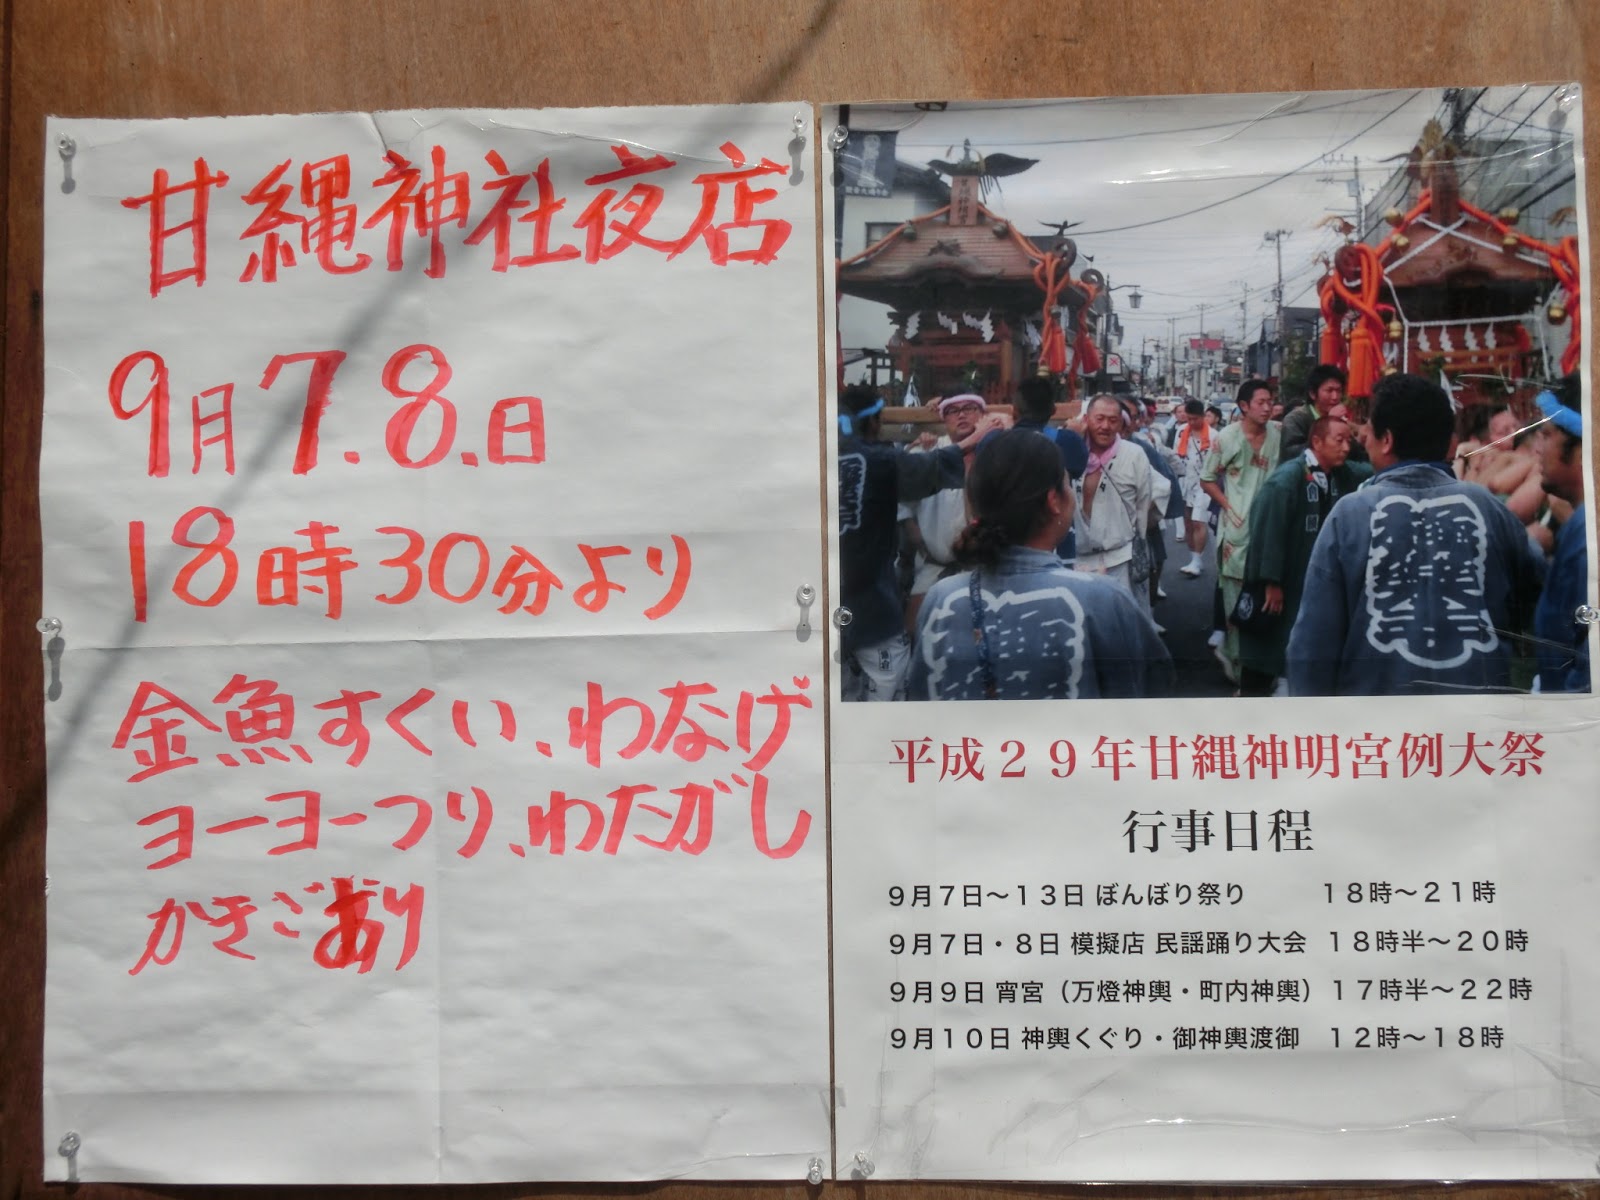 甘縄神社夜店
9月7.8.日
18時30分より
金魚すくい、わなげ
ヨーヨーつり、わたがし
かきごおり
平成２９年甘縄神明宮例大祭
行事日程
９月７日～１３日 ぼんぼり祭り １８時～２１時
９月７日・８日 模擬店 民謡踊り大会 １８時半～２０時
９月９日 宵宮（万燈神輿・町内神輿）１７時半～２２時
９月１０日 神輿くぐり・御神輿渡御 １２時～１８時